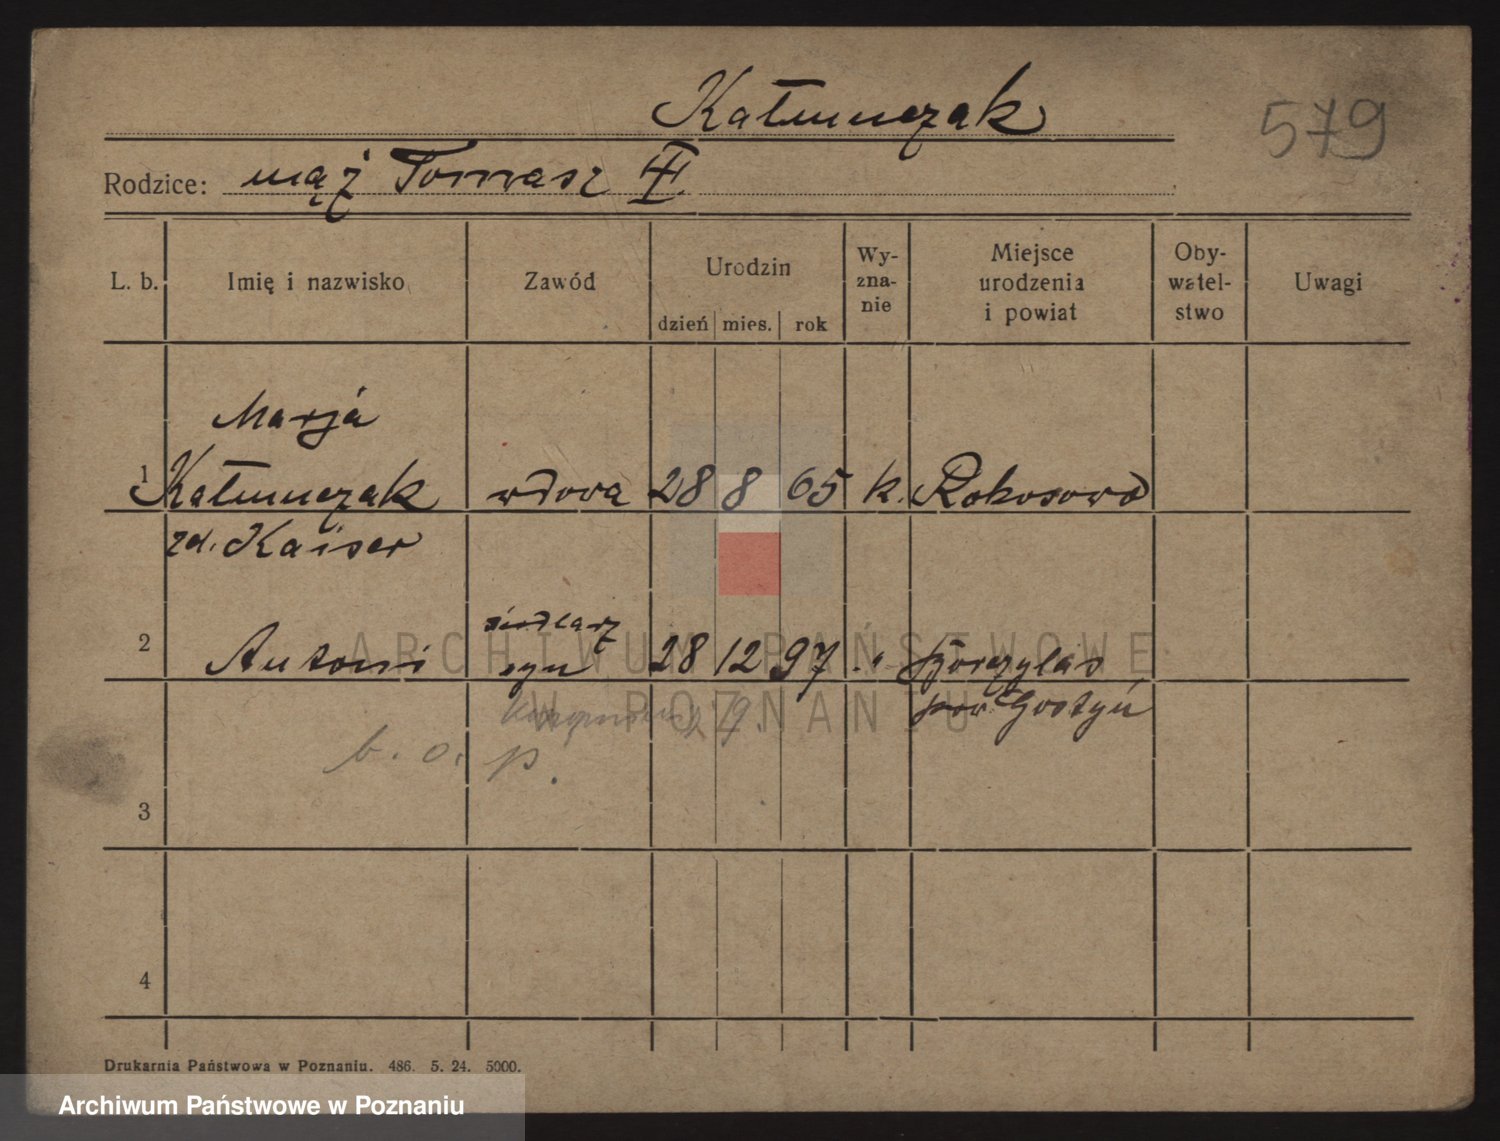 Kałmuczak
579
Rodzice: mąż Tomasz
L. b. Imię i nazwisko Zawód Urodzin dzień mies. rok Wy-zna-nie Miejsce urodzenia i powiat Oby-watel-stwo Uwagi
Marja
1 Kałmuczak wdowa 28 8 65 k. Rokosowo
zd. Kaiser
siodlarz
2 Antoni syn 28 12 97 "
pow. Gostyń
b. o. p.
3
4
Drukarnia Państwowa w Poznaniu. 486. 5. 24. 5000.
ARCHIWUM PAŃSTWOWE
W POZNANIU
Archiwum Państwowe w Poznaniu